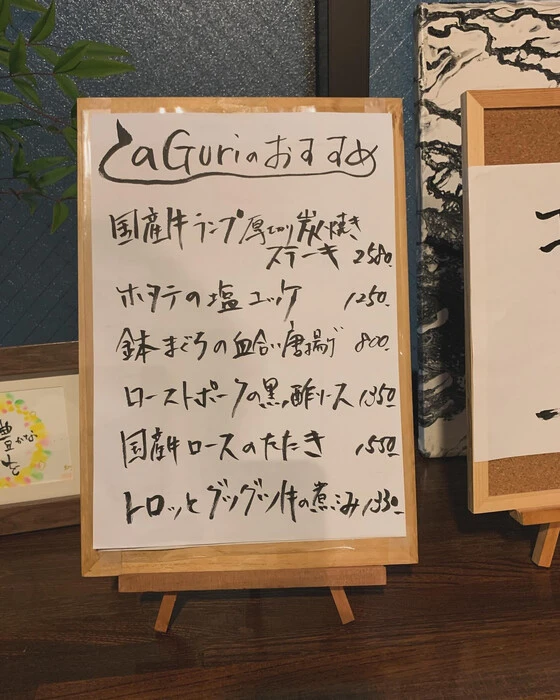 LaGuriのおすすめ
国産牛ランプ厚切り炭火焼き
ステーキ 2580.
ホタテの塩ユッケ 1250.
鉢まぐろの血合い唐揚げ 800.
ローストポークの黒酢ソース 1350
国産牛ロースのたたき 1550
トロッとグツグツ牛の煮こみ 1330
豊かな